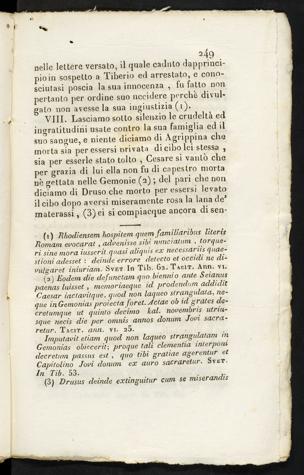 249
nelle lettere versato, il quale caduto dapprinci-
pio in sospetto a Tiberio ed arrestato, e cono-
sciutasi poscia la sua innocenza, fu fatto non
pertanto per ordine suo uccidere perchè divul-
gato non avesse la sua ingiustizia (1).
VIII. Lasciamo sotto silenzio le crudeltà ed
ingratitudini usate contro la sua famiglia ed il
suo sangue, e niente diciamo di Agrippina che
morta sia per essersi privata di cibo lei stessa,
sia per esserle stato tolto, Cesare si vantò che
per grazia di lui ella non fu di capestro morta
nè gettata nelle Gemonie (2); del pari che non
diciamo di Druso che morto per essersi levato
il cibo dopo aversi miseramente rosa la lana de'
materassi, (3) ei si compiacque ancora di sen-
(1) Rhodiensem hospitem quem familiaribus literis
Romam evocarat, advenisse sibi nunciatum, torque-
ri sine mora iusserit quasi aliquis ex necessariis quae-
stioni adesset: deinde errore detecto et occidi ne di-
vulgaret iniuriam. Svet In Tib. 62. Tacit. Ann. vi.
(2) Eodem die defunctam quo biennio ante Seianus
paenas luisset, memoriaeque id prodendum addidit
Caesar iactavitque, quod non laqueo strangulata, ne-
que in Gemonias proiecta foret. Actae ob id grates de-
cretumque ut quinto decimo kal. novembris utriu-
sque necis die per omnis annos donum Jovi sacra-
retur. Tacit. ann. vi. 25.
Imputavit etiam quod non laqueo strangulatam in
Gemonias obiecerit; proque tali clementia interponi
decretum passus est, quo tibi gratiae agerentur et
Capitolino Jovi donum ex auro sacraretur. Svet.
In Tib. 53.
(3) Drusus deinde extinguitur cum se miserandis